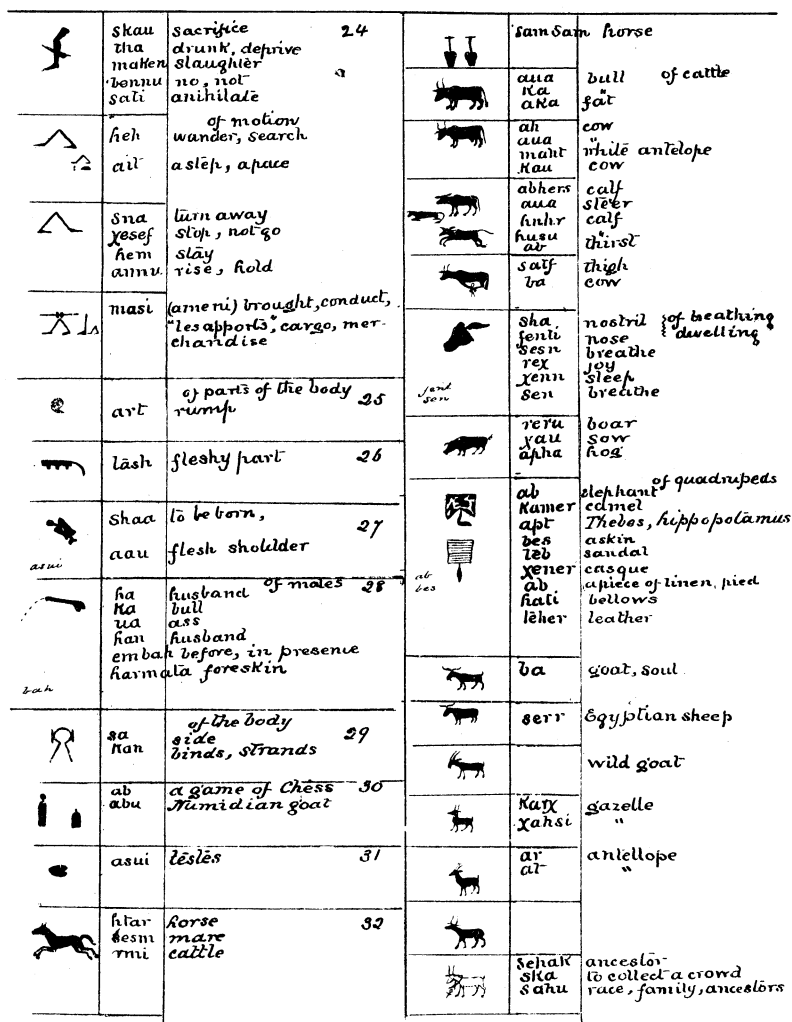 skau sacrifice 24
tha drunk, deprive
maken slaughter
bennu no, not
sati anihilate
of motion
heh wander, search
ait a step, apace
sna turn away
χesef stop, not go
hem stay
annu rise, hold
masi (ameni) brought, conduct,
"les apports", cargo, mer-
chandise
of parts of the body 25
art rump
tāsh fleshy part 26
shaa to be born, 27
aau flesh sholulder
asui
of males 28
ha husband
ka bull
ua ass
han husband
embah before, in presence
harmata foreskin
bah
of the body 29
sa side
kan binds, strands
ab a game of Chess 30
abu Numidian goat
asui testes 31
htar horse 32
sesm mare
rmi cattle
samsam horse
aua bull of cattle
ka "
aka fat
ah cow
aua "
maht while antelope
kau cow
abhers calf
aua steer
hnhr calf
husu "
ab thirst
satf thigh
ba cow
sha nostril of breathing
fenti nose dwelling
sesn breathe
rex joy
χenn sleep
sen breathe
fent
sen
reru boar
χau sow
apha hog
of quadrupeds
ab elephant
kamer camel
apt Thebes, hippopotamus
bes askin
teb sandal
χener casque
ab apiece of linen, pied
hati bellows
teher leather
ab
bes
ba goat, soul
serr Egyptian sheep
wild goat
karχ gazelle
χahsi "
ar antellope
at "
sehak ancestor
ska to collect a crowd
sahu race, family, ancestors